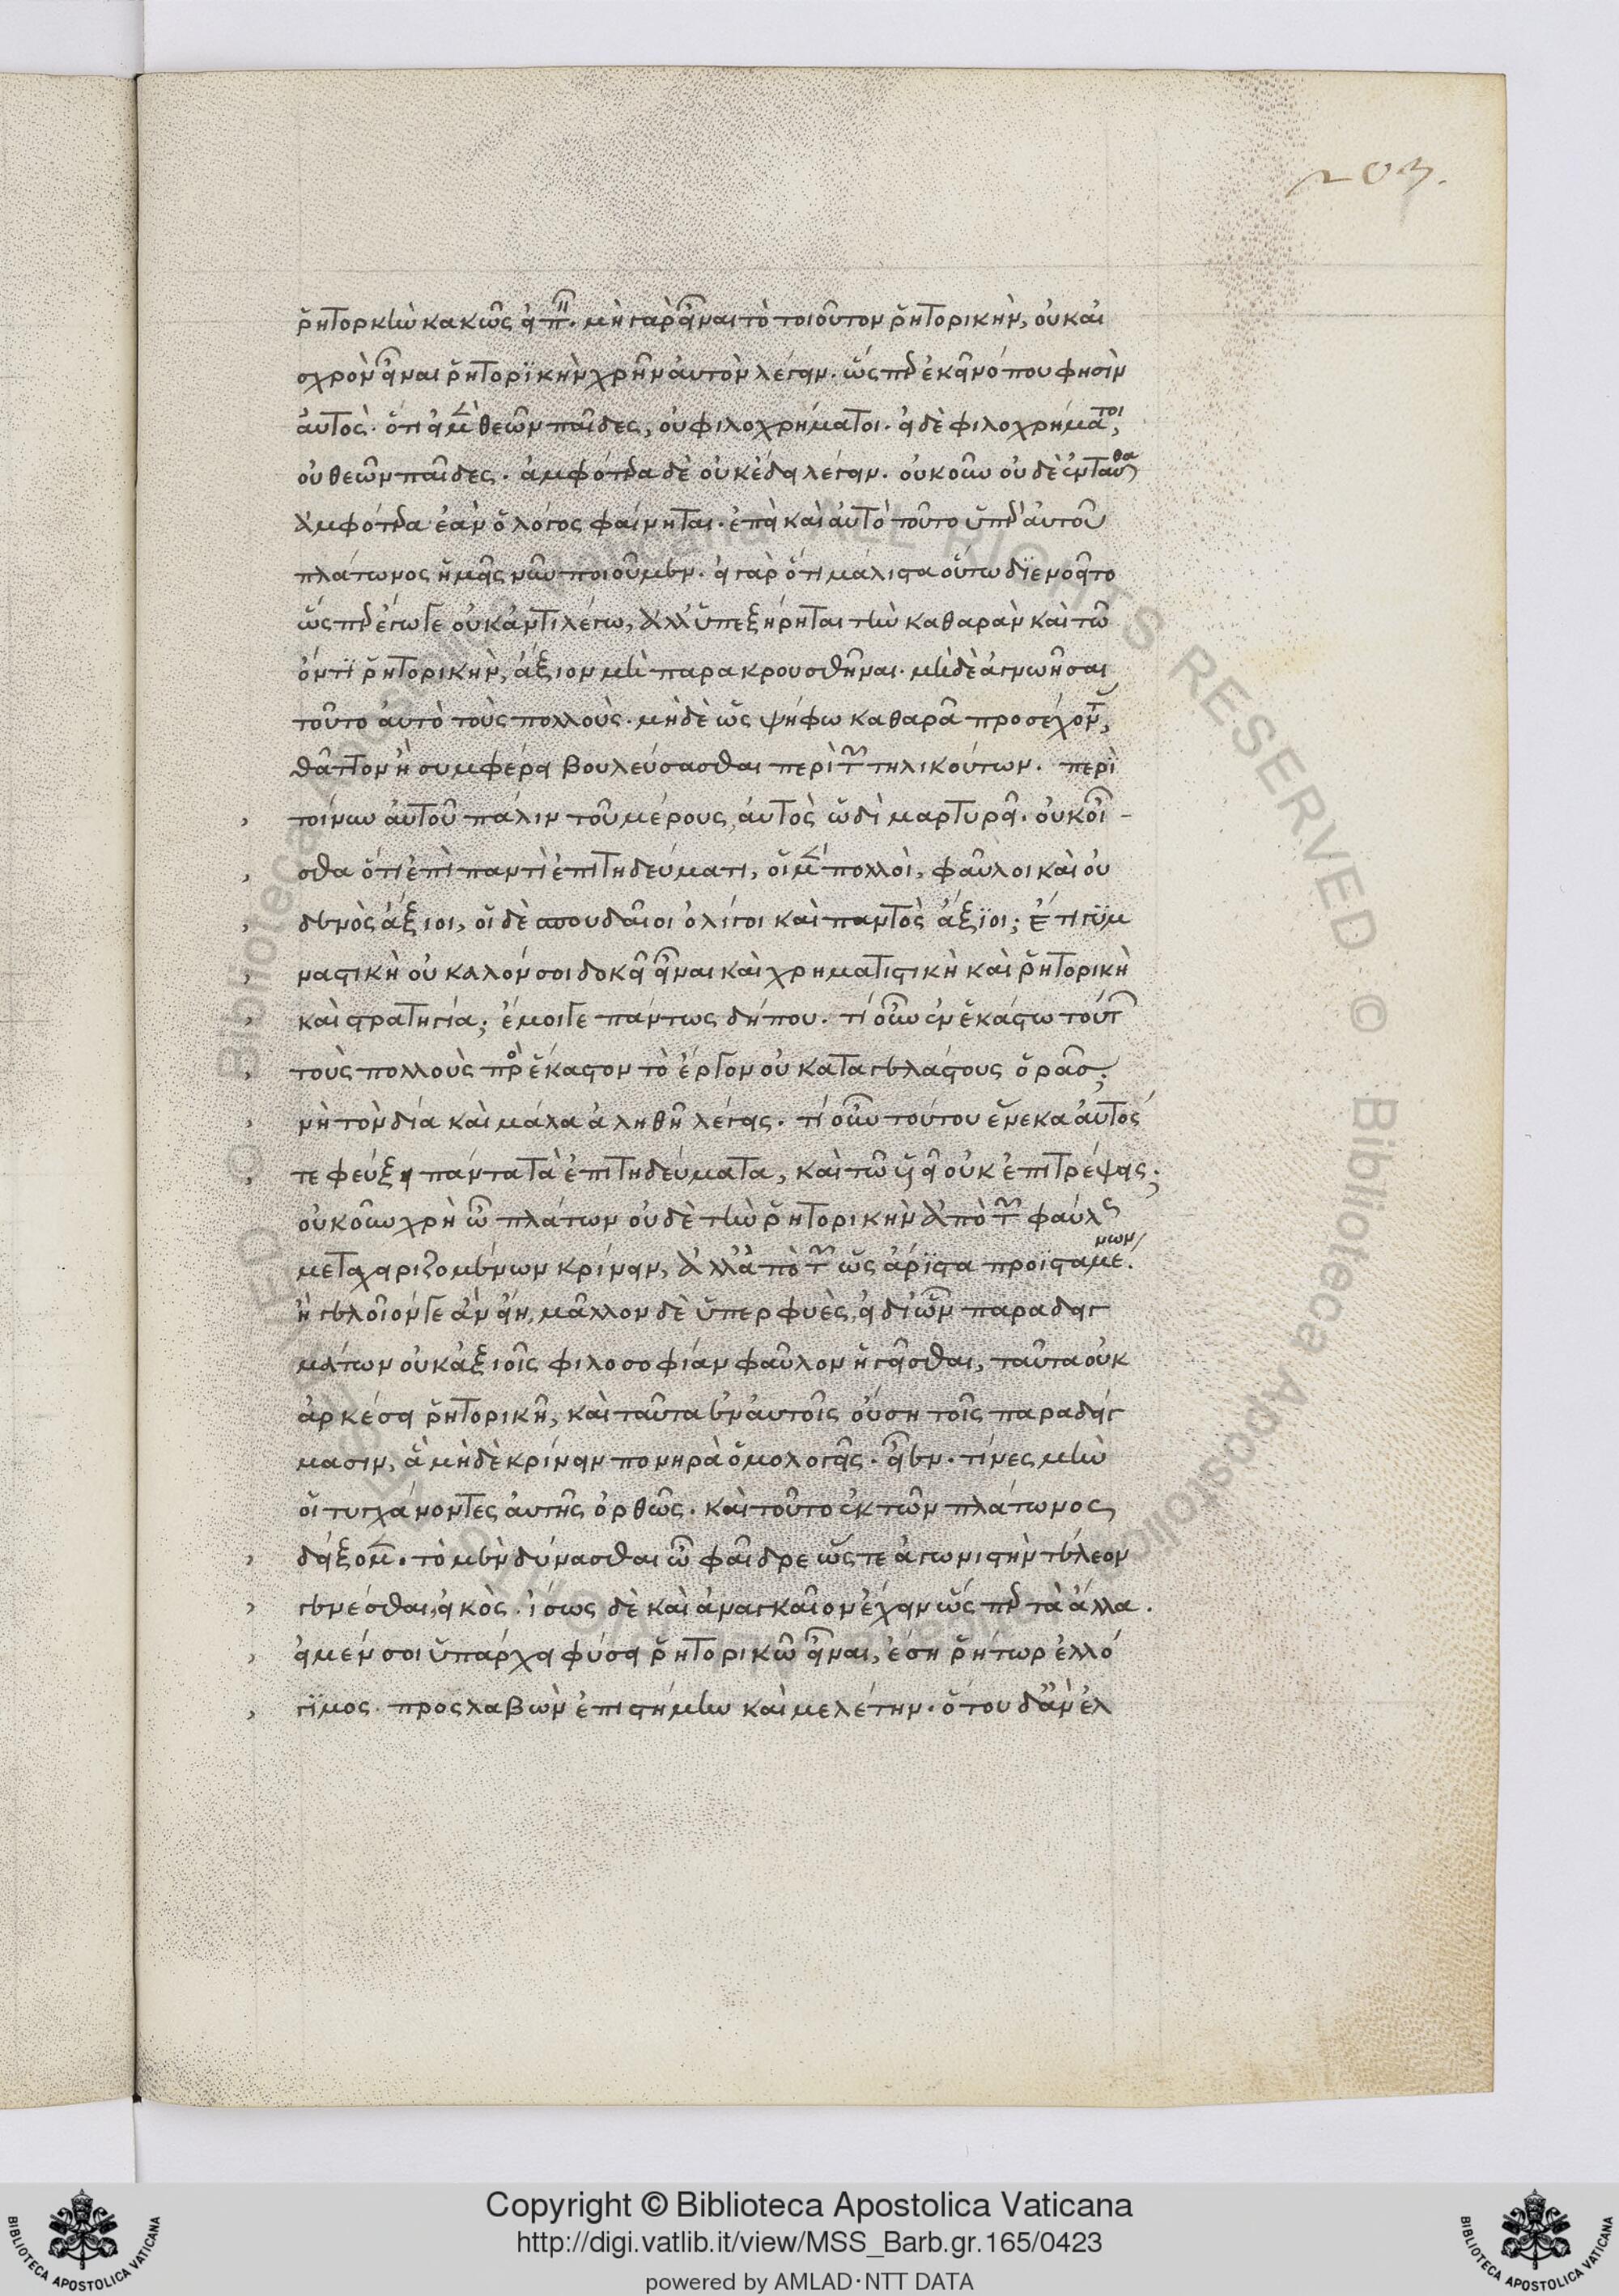 203.
ῥητορικὴν κακῶς εἶπε. μὴ γὰρ εἶναι τὸ τοιοῦτον ῥητορικήν, οὐκ αἰ
σχρὸν εἶναι ῥητορϊκὴν χρῆν αὐτὸν λέγειν. ὥσπερ ἐκεῖνό που φησὶν
αὐτός. ὅτι εἰ μὲν θεῶν παῖδες, οὐ φιλοχρήματοι. εἰ δὲ φιλοχρήματοι,
οὐ θεῶν παῖδες. ἀμφότερα δὲ οὐκ ἔδει λέγειν. οὐκοῦν οὐδὲ ἐνταῦθα
ἀμφότερα ἐὰν ὁ λόγος φαίνηται. ἐπεὶ καὶ αὐτὸ τοῦτο ὑπὲρ αὐτοῦ
πλάτωνος ἡμεῖς νῦν ποιοῦμεν. εἰ γὰρ ὅτι μάλιστα οὕτω δϊενοεῖτο
ὥσπερ ἔγωγε οὐκ ἀντιλέγω, ἀλλ' ὑπεξῄρηται τὴν καθαρὰν καὶ τῷ
ὄντϊ ῥητορικήν, ἄξιον μὴ παρακρουσθῆναι. μηδὲ ἀγνοῆσαι
τοῦτο αὐτὸ τοὺς πολλούς. μηδὲ ὡς ψήφω καθαρᾶ προσέχοντας,
θᾶττον ἢ συμφέρει βουλεύσασθαι περὶ τῶν τηλικούτων. περὶ
τοίνυν αὐτοῦ πάλιν τοῦ μέρους, αὐτὸς ὡδὶ μαρτυρεῖ. οὐκ οἶ-
σθα ὅτι ἐπὶ παντὶ ἐπιτηδεύματι, οἱ μὲν πολλοὶ, φαῦλοι καὶ οὐ
δενὸς ἄξιοι, οἱ δὲ σπουδαῖοι ὀλίγοι καὶ παντὸς ἄξϊοι; ἔτι γϋμ
ναστικὴ οὐ καλόν σοι δοκεῖ εἶναι καὶ χρηματιστικὴ καὶ ῥητορικὴ
καὶ στρατηγία; ἔμοιγε πάντως δήπου. τί οὖν ἐν ἑκάστω τούτων
τοὺς πολλοὺς πρὸς ἕκαστον τὸ ἔργον οὐ καταγελάστους ὁρᾶς;
νὴ τὸν δία καὶ μάλα ἀληθῆ λέγεις. τί οὖν τούτου ἕνεκα αὐτός
τε φεύξει πάντα τὰ ἐπιτηδεύματα, καὶ τῷ υἱεῖ οὐκ ἐπιτρέψεις;
οὐκοῦν χρὴ ὦ πλάτων οὐδὲ τὴν ῥητορικὴν ἀπὸ τῶν φαύλως
μεταχειριζομένων κρίνειν, ἀλλ' ἀπὸ τῶν ὡς ἄρϊστα προϊσταμένων.
ἢ γελοῖόν γε ἂν εἴη, μᾶλλον δὲ ὑπερφυές, εἰ δι' ὧν παραδειγ
μάτων οὐκ ἀξιοῖς φιλοσοφίαν φαῦλον ἡγεῖσθαι, ταῦτα οὐκ
ἀρκέσει ῥητορικῇ, καὶ ταῦτα ἐν αὐτοῖς οὔσῃ τοῖς παραδείγ
μασιν, ἃ μηδὲ κρίνειν πονηρὰ ὁμολογεῖς. εἶεν. τίνες μὴν
οἱ τυγχάνοντες αὐτῆς ὀρθῶς. καὶ τοῦτο ἐκ τῶν πλάτωνος
δείξομεν. τὸ μὲν δύνασθαι ὦ φαῖδρε ὥστε ἀγωνιστὴν τέλεον
γενέσθαι, εἰκός. ἴσως δὲ καὶ ἀναγκαῖον ἔχειν ὥσπερ τὰ ἄλλα.
εἰ μέν σοι ὑπάρχει φύσει ῥητορικῷ εἶναι, ἔσῃ ῥήτωρ ἐλλό
γϊμος. προσλαβὼν ἐπιστήμην καὶ μελέτην. ὅτου δ' ἂν ἐλ
Copyright © Biblioteca Apostolica Vaticana
http://digi.vatlib.it/view/MSS_Barb.gr.165/0423
powered by AMLAD·NTT DATA